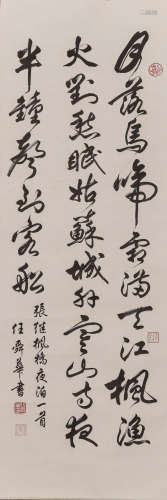 月落烏啼霜滿天江楓漁
火對愁眠姑蘇城外寒山寺夜
半鐘聲到客船
張繼楓橋夜泊一首
任舜華書